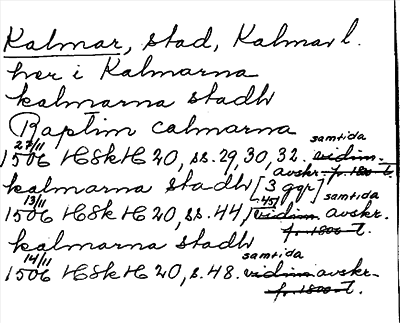 Kalmar, stad, Kalmar l.
her i Kalmarna
kalmarna stadh
Raptim calmarna
27/11 samtida
1506 HSkH 20, ss. 29, 30, 32. vidim.
avskr. fr. 1800-t.
kalmarna stadh [3 ggr]
13/11 45) samtida
1506 HSkH 20, ss. 44, vidim. avskr.
fr. 1800-t.
kalmarna stadh
14/11 samtida
1506 HSkH 20, s. 48. vidim. avskr.
fr. 1800-t.